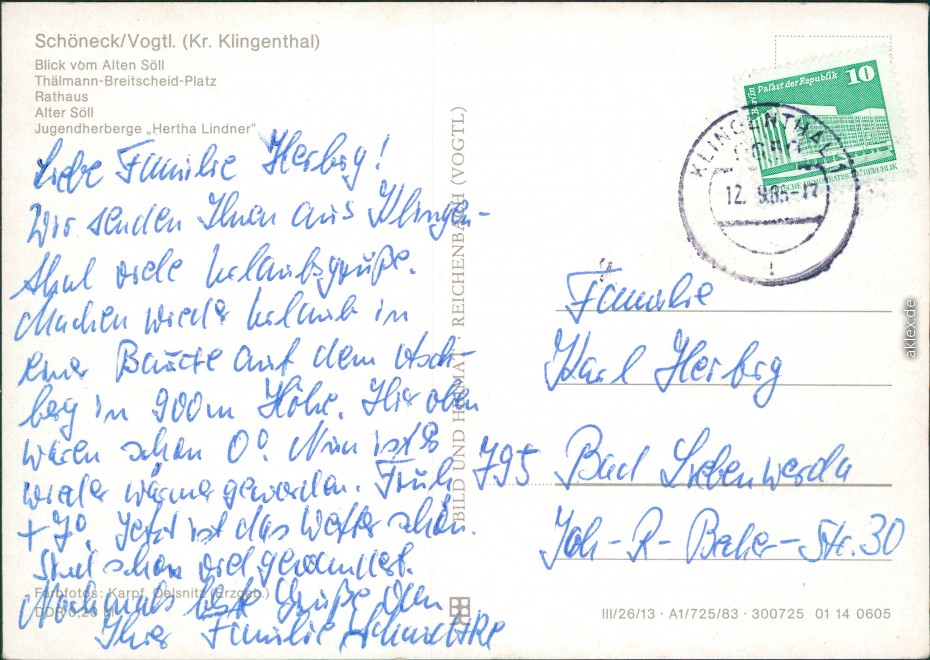 Schöneck/Vogtl. (Kr. Klingenthal)
Blick vom Alten Söll
Thälmann-Breitscheid-Platz
Rathaus
Alter Söll
Jugendherberge „Hertha Lindner”
Liebe Familie Herbrg!
Wir senden Ihnen aus Klingen-
thal viele Urlaubsgrüße.
Machen wieder Urlaub in
einer Baude auf dem Asch-
berg in 900m Höhe. Hier oben
waren schon 0°. Nun ist es
wieder wärmer geworden. Früh
+7°. Jetzt ist das Wetter schön.
Sind schon viel gewandert.
Nochmals Grüße von
Ihrer Familie
Farbfotos: Karpf, Oelsnitz (Erzgeb.)
DDR 0,20 M
BILD UND HEIMAT REICHENBACH (VOGTL)
Berlin Palast der Republik 10
DEUTSCHE DEMOKRATISCHE REPUBLIK
KLINGENTHAL 1
12. 9.85-17
Familie
Karl Herbrg
795 Bad Liebenwerda
Joh-R-Becher-Str. 30
III/26/13 · A1/725/83 · 300725 01 14 0605
aklex.de